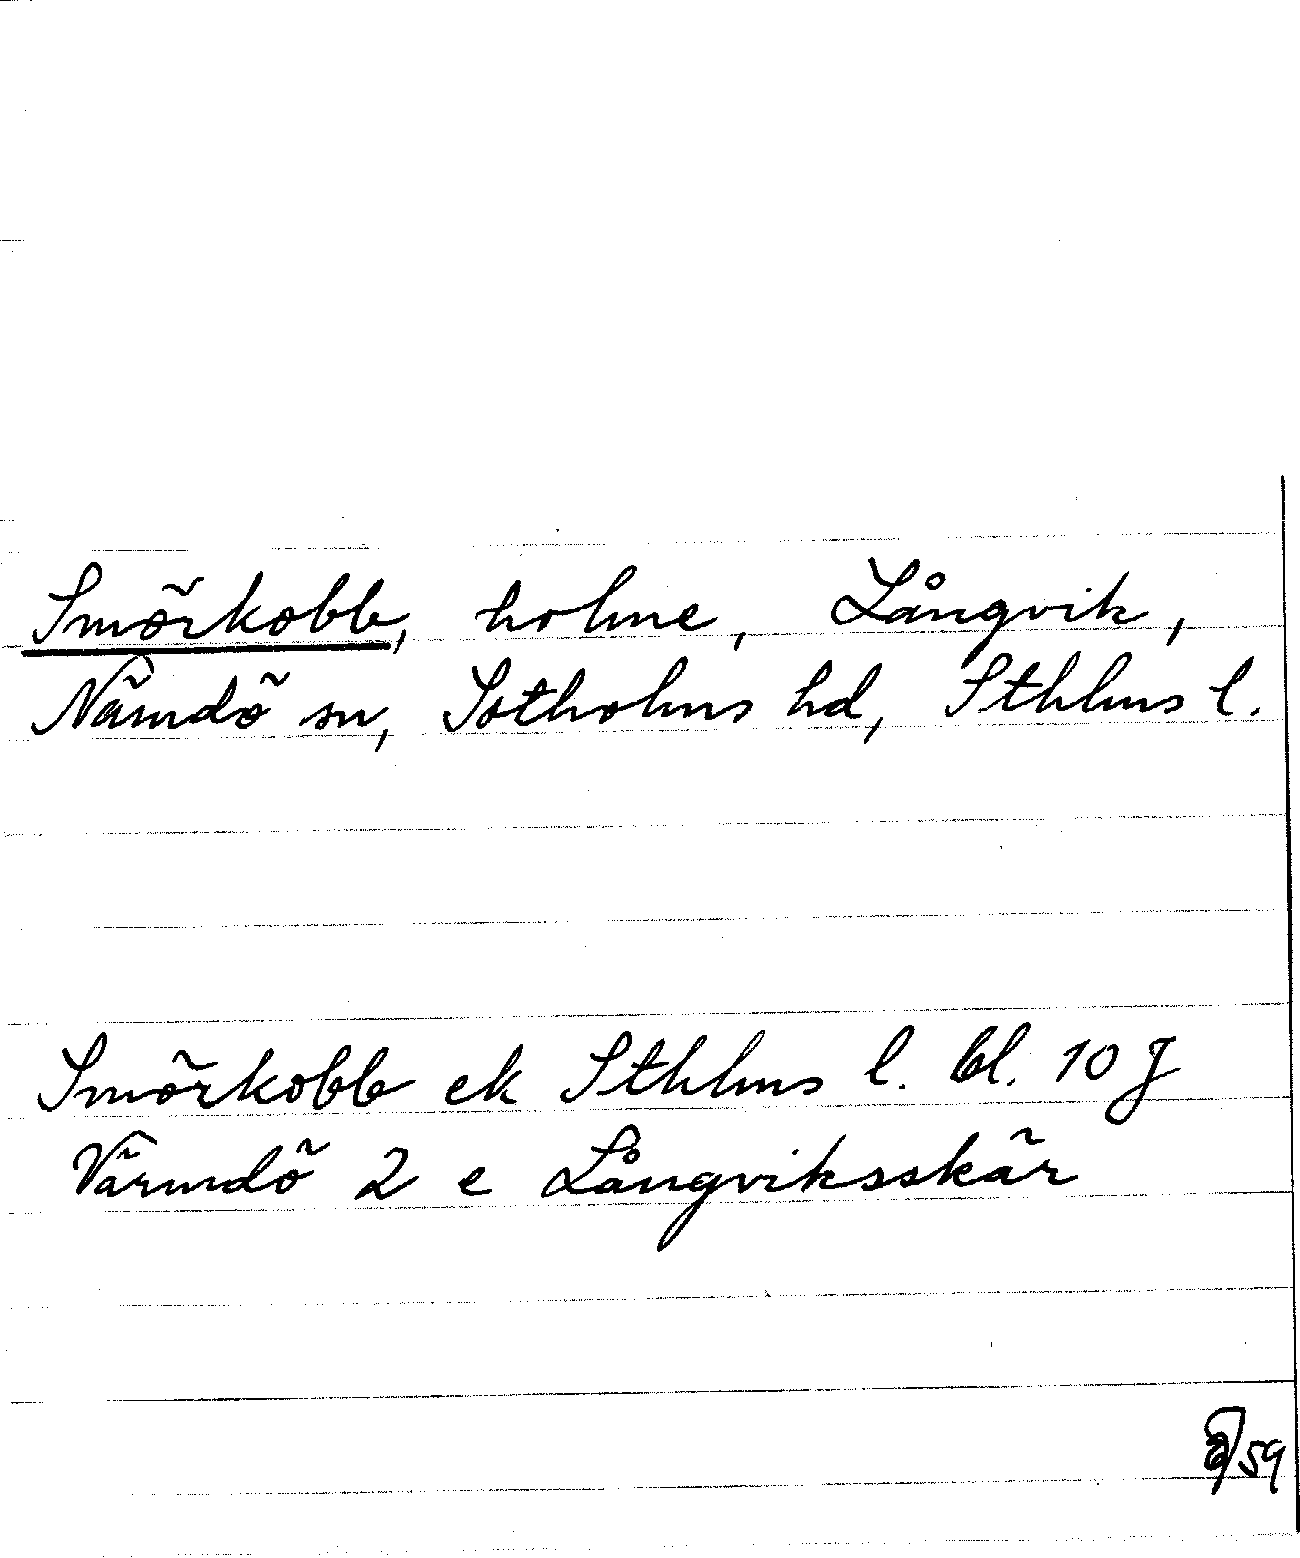 Smörkobb, holme, Långvik,
Nämdö sn, Sotholms hd, Sthlms l.
Smörkobb ek Sthlms l. bl. 10 J
Värmdö 2 e Långviksskär
59